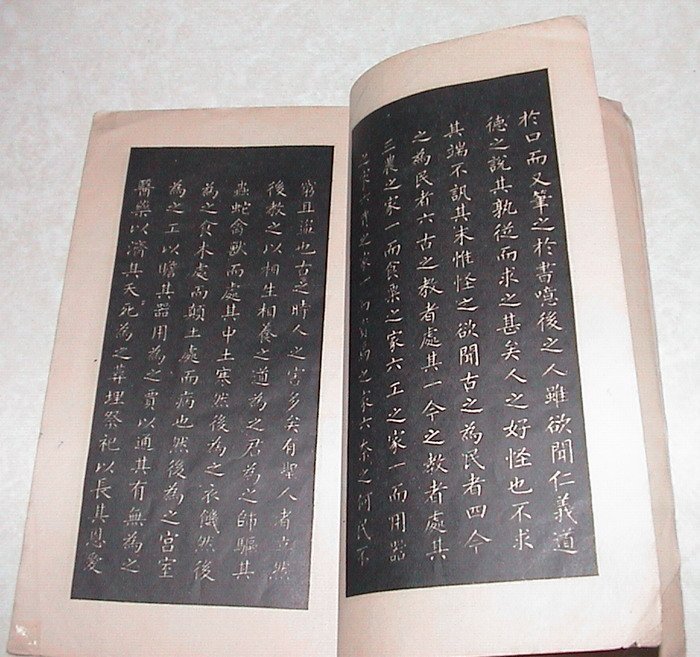 於口而又筆之於書噫後之人雖欲聞仁義道
德之說其孰從而求之甚矣人之好怪也不求
其端不訊其末惟怪之欲聞古之為民者四今
之為民者六古之教者處其一今之教者處其
三農之家一而食粟之家六工之家一而用器
之家六賈之家一而資焉之家六奈之何民不
窮且盜也古之時人之害多矣有聖人者立然
後教之以相生相養之道為之君為之師驅其
蟲蛇禽獸而處其中土寒然後為之衣饑然後
為之食木處而顛土處而病也然後為之宮室
為之工以贍其器用為之賈以通其有無為之
醫藥以濟其夭死為之葬埋祭祀以長其恩愛